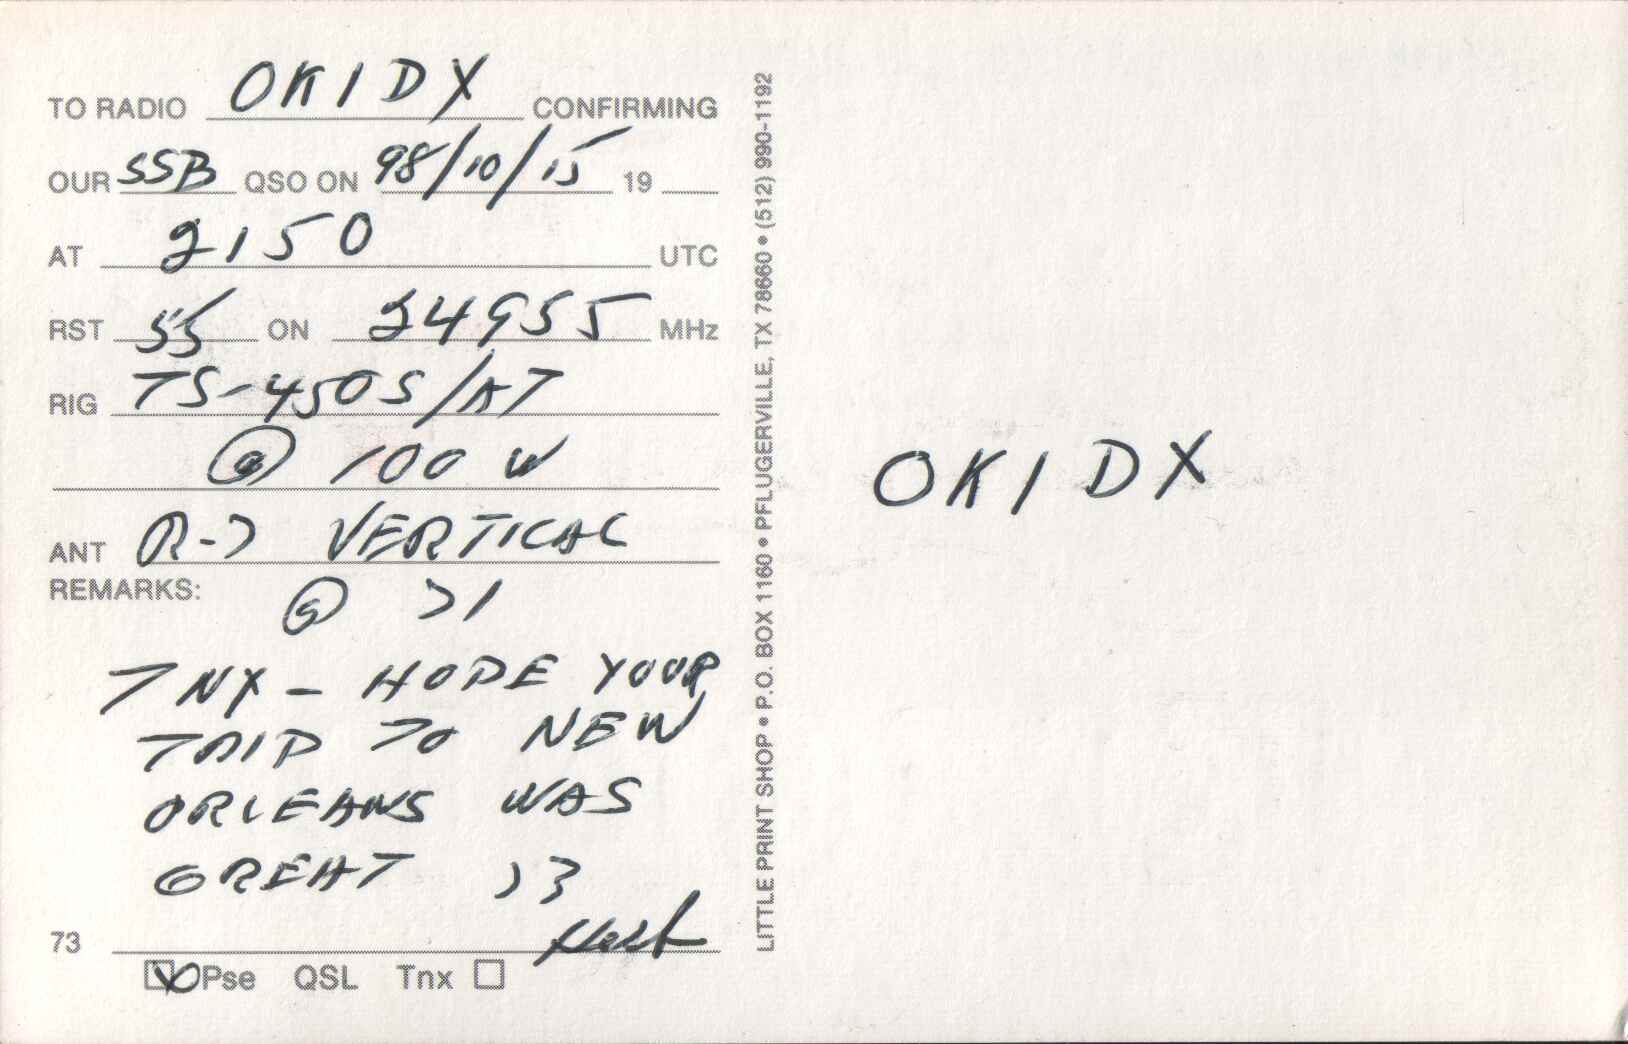 TO RADIO OK1DX CONFIRMING
OUR SSB QSO ON 98/10/15 19
AT 2150 UTC
RST 55 ON 24955 MHz
RIG TS-450S/AT
@ 100 W
ANT R-7 VERTICAL
REMARKS: @ 71
TNX - HOPE YOUR
TRIP TO NEW
ORLEANS WAS
GREAT 73
73
Pse QSL Tnx
LITTLE PRINT SHOP • P.O. BOX 1160 • PFLUGERVILLE, TX 78660 • (512) 990-1192
OK1DX